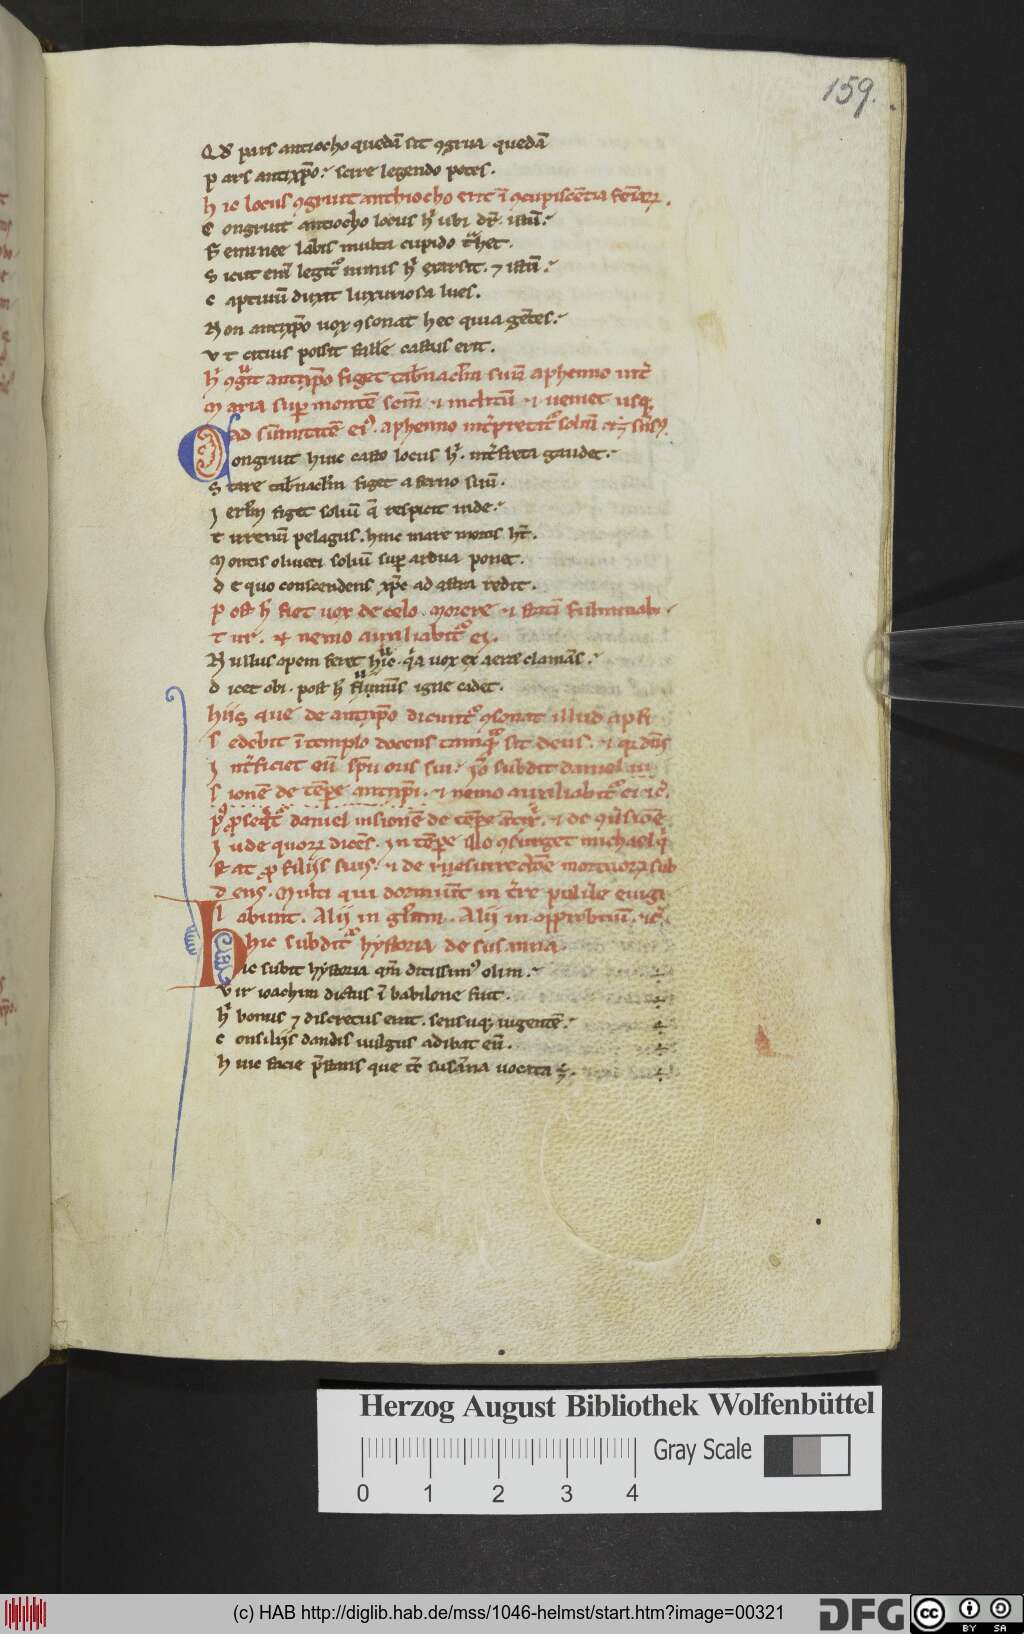 159.
Qd pars antiocho quedā sit ꝯgrua quedā
p ars antixp̄o. scire legendo potes.
h ic locus ꝯgruit anthiocho erit ī ꝯcupiscētia
C ongruit antiocho locus hͥ ubi
F eminee labis multa cupido
S icut legitͦ nimis hͥ exarsit. ⁊ istū.
c aptiuū duxit luxuriosa lues.
N on antixp̄o uox ꝯsonat hec quia gētes.
v t citius possit fallē castus erit.
antixp̄o figet tab̄nacl̄m suū aphenno
M aria suꝑ montē scm̄ ⁊ inclitū ⁊ ueniet usqꝫ
ad sūmitatē eiꝰ. aphenno
C ongruit huic casto locus hͥ. gaudet.
S tare tab̄nacl̄m figet a ferno suū.
I erl̄m figet soliū q̄ respicit inde.
t irrenū pelagus. hinc mare mortis
M ontis oliueti soliū suꝑ ardua ponet.
d e quo conscendens xp̄c ad astra redit.
p ost fiet uox de celo. Morere ⁊ statī fulminabi
t ur. ⁊ nemo auxiliabitͦ ei.
N ullus opem feret huic. qͥa uox ex aere clamās.
d icet obi. post h̄ igne cadet.
hiis que de antixp̄o dicuntͦ ꝯsonat illud
s edebit ī templo docens tamqͣ sit deus. ⁊
I nt̄ficiet eū spū oris sui. subdit daniel ui
s ionē de tēpe antixp̄i. ⁊ nemo auxiliabitͦ ei
daniel uisionē de tēpe ⁊ de
I ude quorꝝ dicēs. In tēpe illo ꝯsurget michael qͥ
st at ꝓ filiis suis. ⁊ de resurrectōe mortuorꝝ sub
d ens. Multi qui dormiūt in puluͤe euigi
l abunt. Alij in gl̄iam. Alij in opprobriū.
hic subditͦ hystoria de susanna
H ic subit hystoria qm̄ ditissimꝰ olim.
v ir ioachim dictus ī babilone fuit.
hͥ bonus ⁊ discretus erat. sensuqꝫ uigentē.
c onsiliis dandis uulgus adibat eū.
h uic facie p̄stans que susāna uocata
Herzog August Bibliothek Wolfenbüttel
Gray Scale
0 1 2 3 4
(c) HAB http://diglib.hab.de/mss/1046-helmst/start.htm?image=00321
DFG
cc BY SA